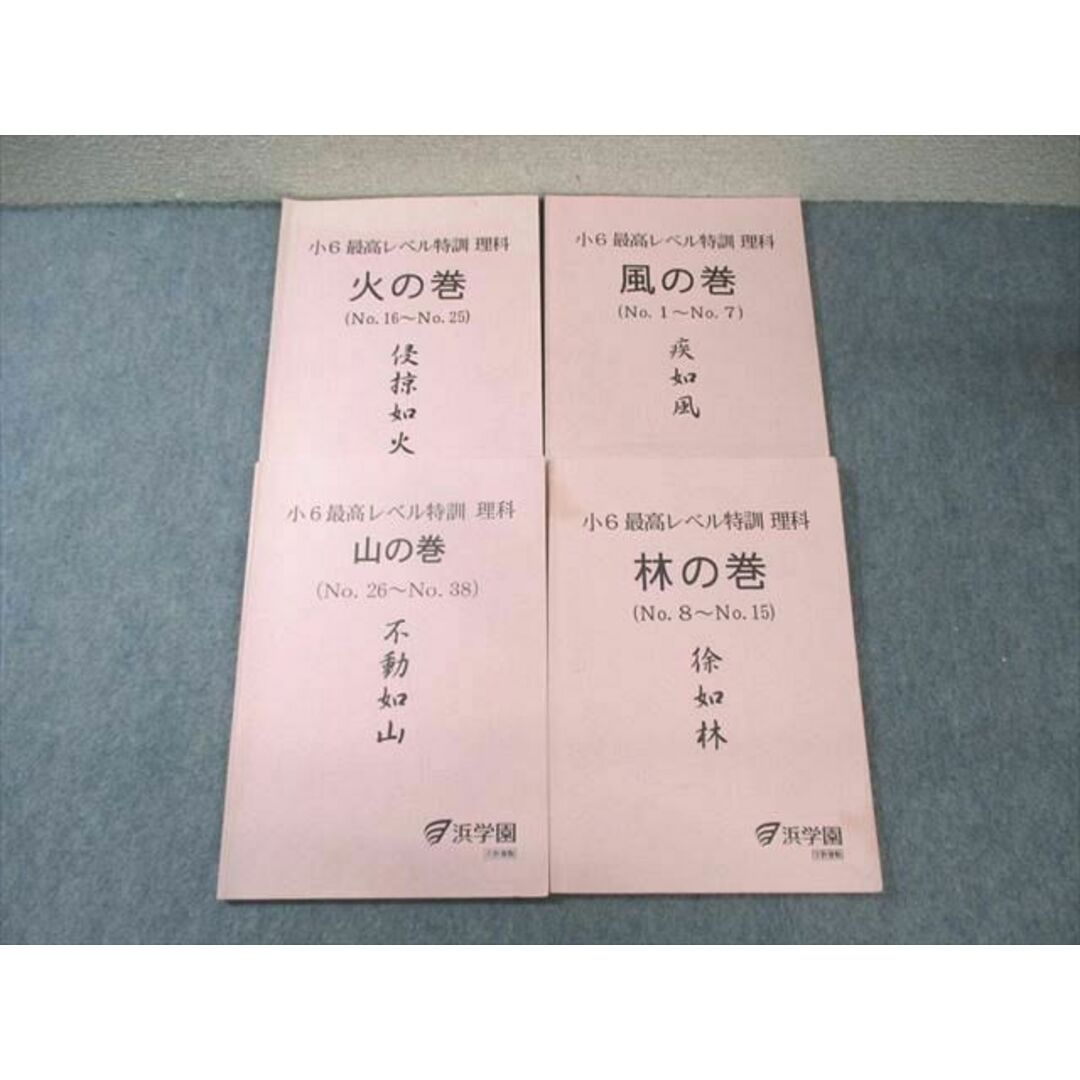 小6 最高レベル特訓 理科
火の巻
(No. 16～No. 25)
侵掠如火
小6 最高レベル特訓 理科
風の巻
(No. 1～No. 7)
疾如風
小6 最高レベル特訓 理科
山の巻
(No. 26～No. 38)
不動如山
浜学園
小6 最高レベル特訓 理科
林の巻
(No. 8～No. 15)
徐如林
浜学園